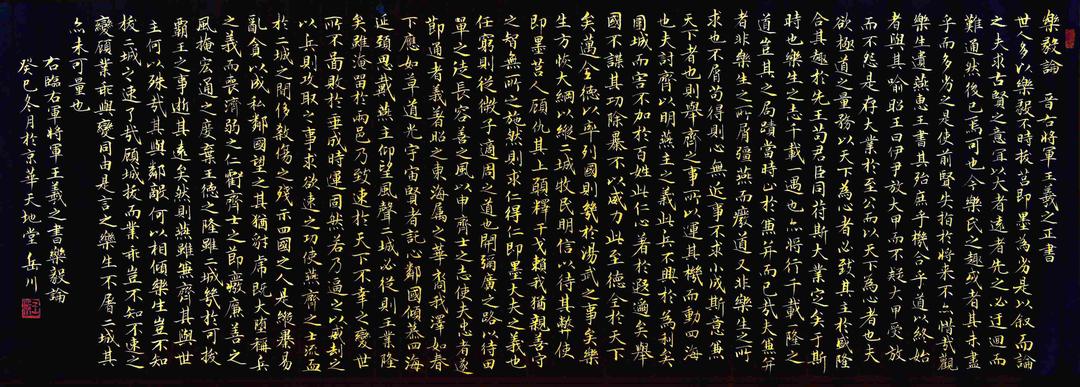 樂毅論 晉右將軍王羲之正書
世人多以樂毅不時拔莒即墨為劣是以叙而論
之夫求古賢之意宜以大者遠者先之必迂迴而
難通然後已焉可也今樂氏之趣或者其未盡
乎而多劣之是使前賢失指於將來不亦惜哉觀
樂生遺燕惠王書其殆庶乎機合乎道以終始
者與其喻昭王曰伊尹放大甲而不疑大甲受放
而不怨是存大業於至公而以天下為心者也夫
欲極道之量務以天下為心者必致其主於盛隆
合其趣於先王苟君臣同符斯大業定矣于斯
時也樂生之志千載一遇也亦將行千載一隆之
道豈其之局蹟當時止於兼并而已哉夫兼并
者非樂生之所屑彊燕而廢道又非樂生之所
求也不屑苟得則心無近事不求小成斯意兼
天下者也則舉齊之事所以運其機而動四海
也夫討齊以明燕主之義此兵不興於為利矣
圍城而害不加於百姓此仁心著於遐邇矣舉
國不謀其功除暴不以威力此至德令於天下
矣邁全德以率列國則幾於湯武之事矣樂
生方恢大綱以縱二城牧民明信以待其弊使
即墨莒人顧仇其上願釋干戈賴我猶親善守
之智無所之施然則求仁得仁即墨大夫之義也
任窮則從微子適周之道也開彌廣之路以待田
單之徒長容善之風以申齊士之志使夫忠者遂
節通者義著昭之東海屬之華裔我澤如春
下應如草道光宇宙賢者託心鄰國傾慕四海
延頸思戴燕主仰望風聲二城必從則王業隆
矣雖淹留於兩邑乃致速於天下不幸之變世
所不圖敗於垂成時運固然若乃逼之以威劫之
以兵則攻取之事求欲速之功使燕齊之士流血
於二城之間侈殺傷之殘示四國之人是縱暴易
亂貪以成私鄰國望之其猶豺虎既大墮稱兵
之義而喪濟弱之仁虧齊士之節廢廉善之
風掩宏通之度棄王德之隆雖二城幾於可拔
霸王之事逝其遠矣然則燕雖兼齊其與世
主何以殊哉其與鄰敵何以相傾樂生豈不知
拔二城之速了哉顧城拔而業乖豈不知不速之
變顧業乖與變同由是言之樂生不屠二城其
亦未可量也
右臨右軍將軍王羲之書樂毅論
癸巳冬月於京華天地堂 岳川